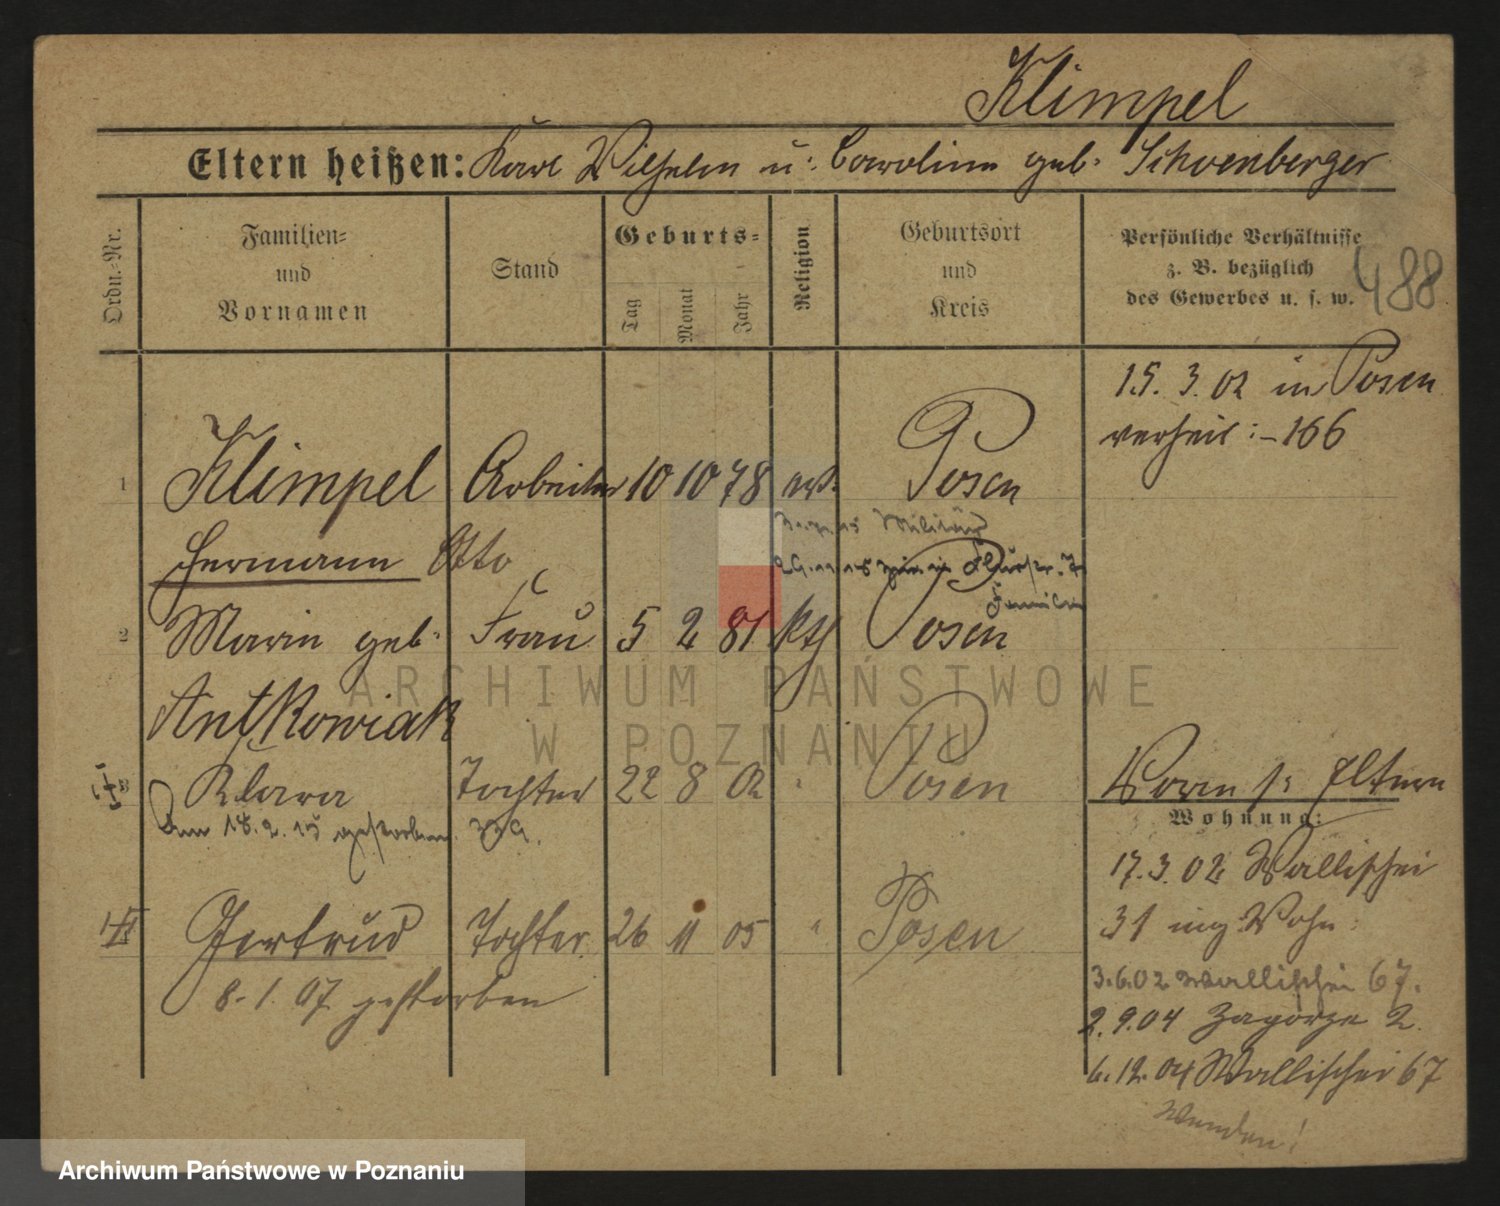 Klimpel
Eltern heißen: Karl Wilhelm u. Caroline geb. Schoenberger
Ordn.-Nr.
Familien-
und
Vornamen
Stand
Geburts-
Tag
Monat
Jahr
Religion
Geburtsort
und
Kreis
Persönliche Verhältnisse
z. B. bezüglich
des Gewerbes u. s. w.
488
15. 3. 02 in Posen
verheir: - 166
1 Klimpel Arbeiter 10 10 78 ev. Posen
Militär
Hermann Otto
Familie
2 Marie geb. Frau 5 2 81 kth Posen
Antkowiak
3 Klara Tochter 22 8 02 " Posen
Am 18. 2. 15 gestorben.
Vorm s: Eltern
Wohnung:
17. 3. 02 Wallischei
31 Wohn
Gertrud Tochter 26 11 05 " Posen
8. 1. 07 gestorben
3. 6. 02 Wallischei 67.
2. 9. 04 Zagorze 2
6. 12. 04 Wallischei 67
Wenden!
ARCHIWUM PAŃSTWOWE
W POZNANIU
Archiwum Państwowe w Poznaniu